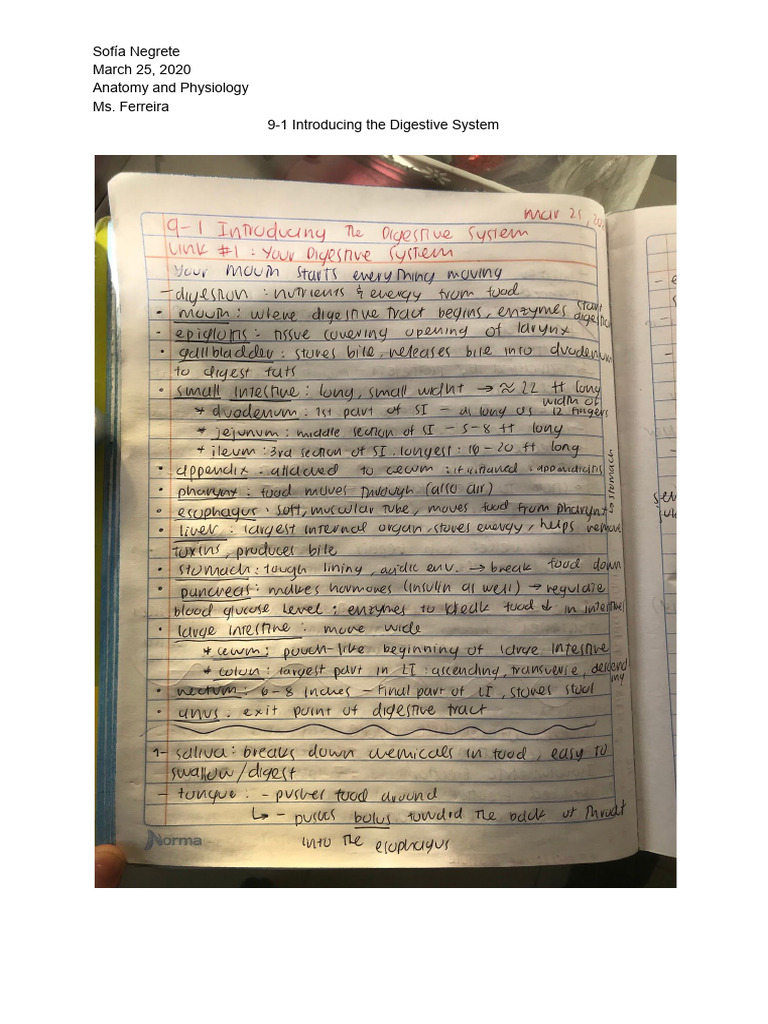 Sofía Negrete
March 25, 2020
Anatomy and Physiology
Ms. Ferreira
9-1 Introducing the Digestive System
Mar 25, 20
9-1 Introducing The Digestive System
Link #1: Your Digestive System
Your mouth starts everything moving
- digestion: nutrients & energy from food
• mouth: where digestive tract begins, enzymes start digestion
• epiglotis: tissue covering opening of larynx
• gallbladder: stores bile, releases bile into duodenum
to digest fats
• small intestine: long, small widht → ≈ 22 ft long
* duodenum: 1st part of SI - as long as width of 12 fingers
* jejunum: middle section of SI - 5-8 ft long
* ileum: 3rd section of SI, longest: 16-20 ft long
• appendix: attached to cecum: if inflamed: appendicitis
• pharynx: food moves through (also air)
• esophagus: soft, muscular tube, moves food from pharynx to stomach
• liver: largest internal organ, stores energy, helps remove
toxins, produces bile
• stomach: tough lining, acidic env. → break food down
• pancreas: makes hormones (insulin as well) → regulate
blood glucose level; enzymes to break food ↓ in intestines
• large intestine: more wide
* cecum: pouch-like beginning of large intestine
* colon: largest part in LI: ascending, transverse, descending
• rectum: 6-8 inches - final part of LI, stores stool
• anus: exit point of digestive tract
1- saliva: breaks down chemicals in food, easy to
swallow/digest
- tongue: - pushes food around
↳ - pushes bolus toward the back of throat
into the esophagus
Norma